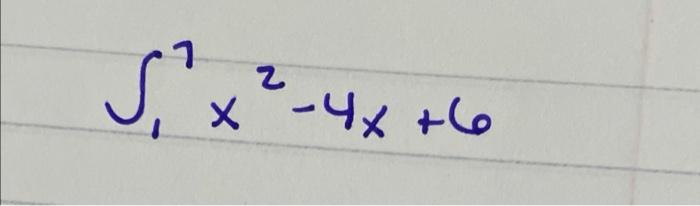 ∫₁⁷ x² - 4x + 6